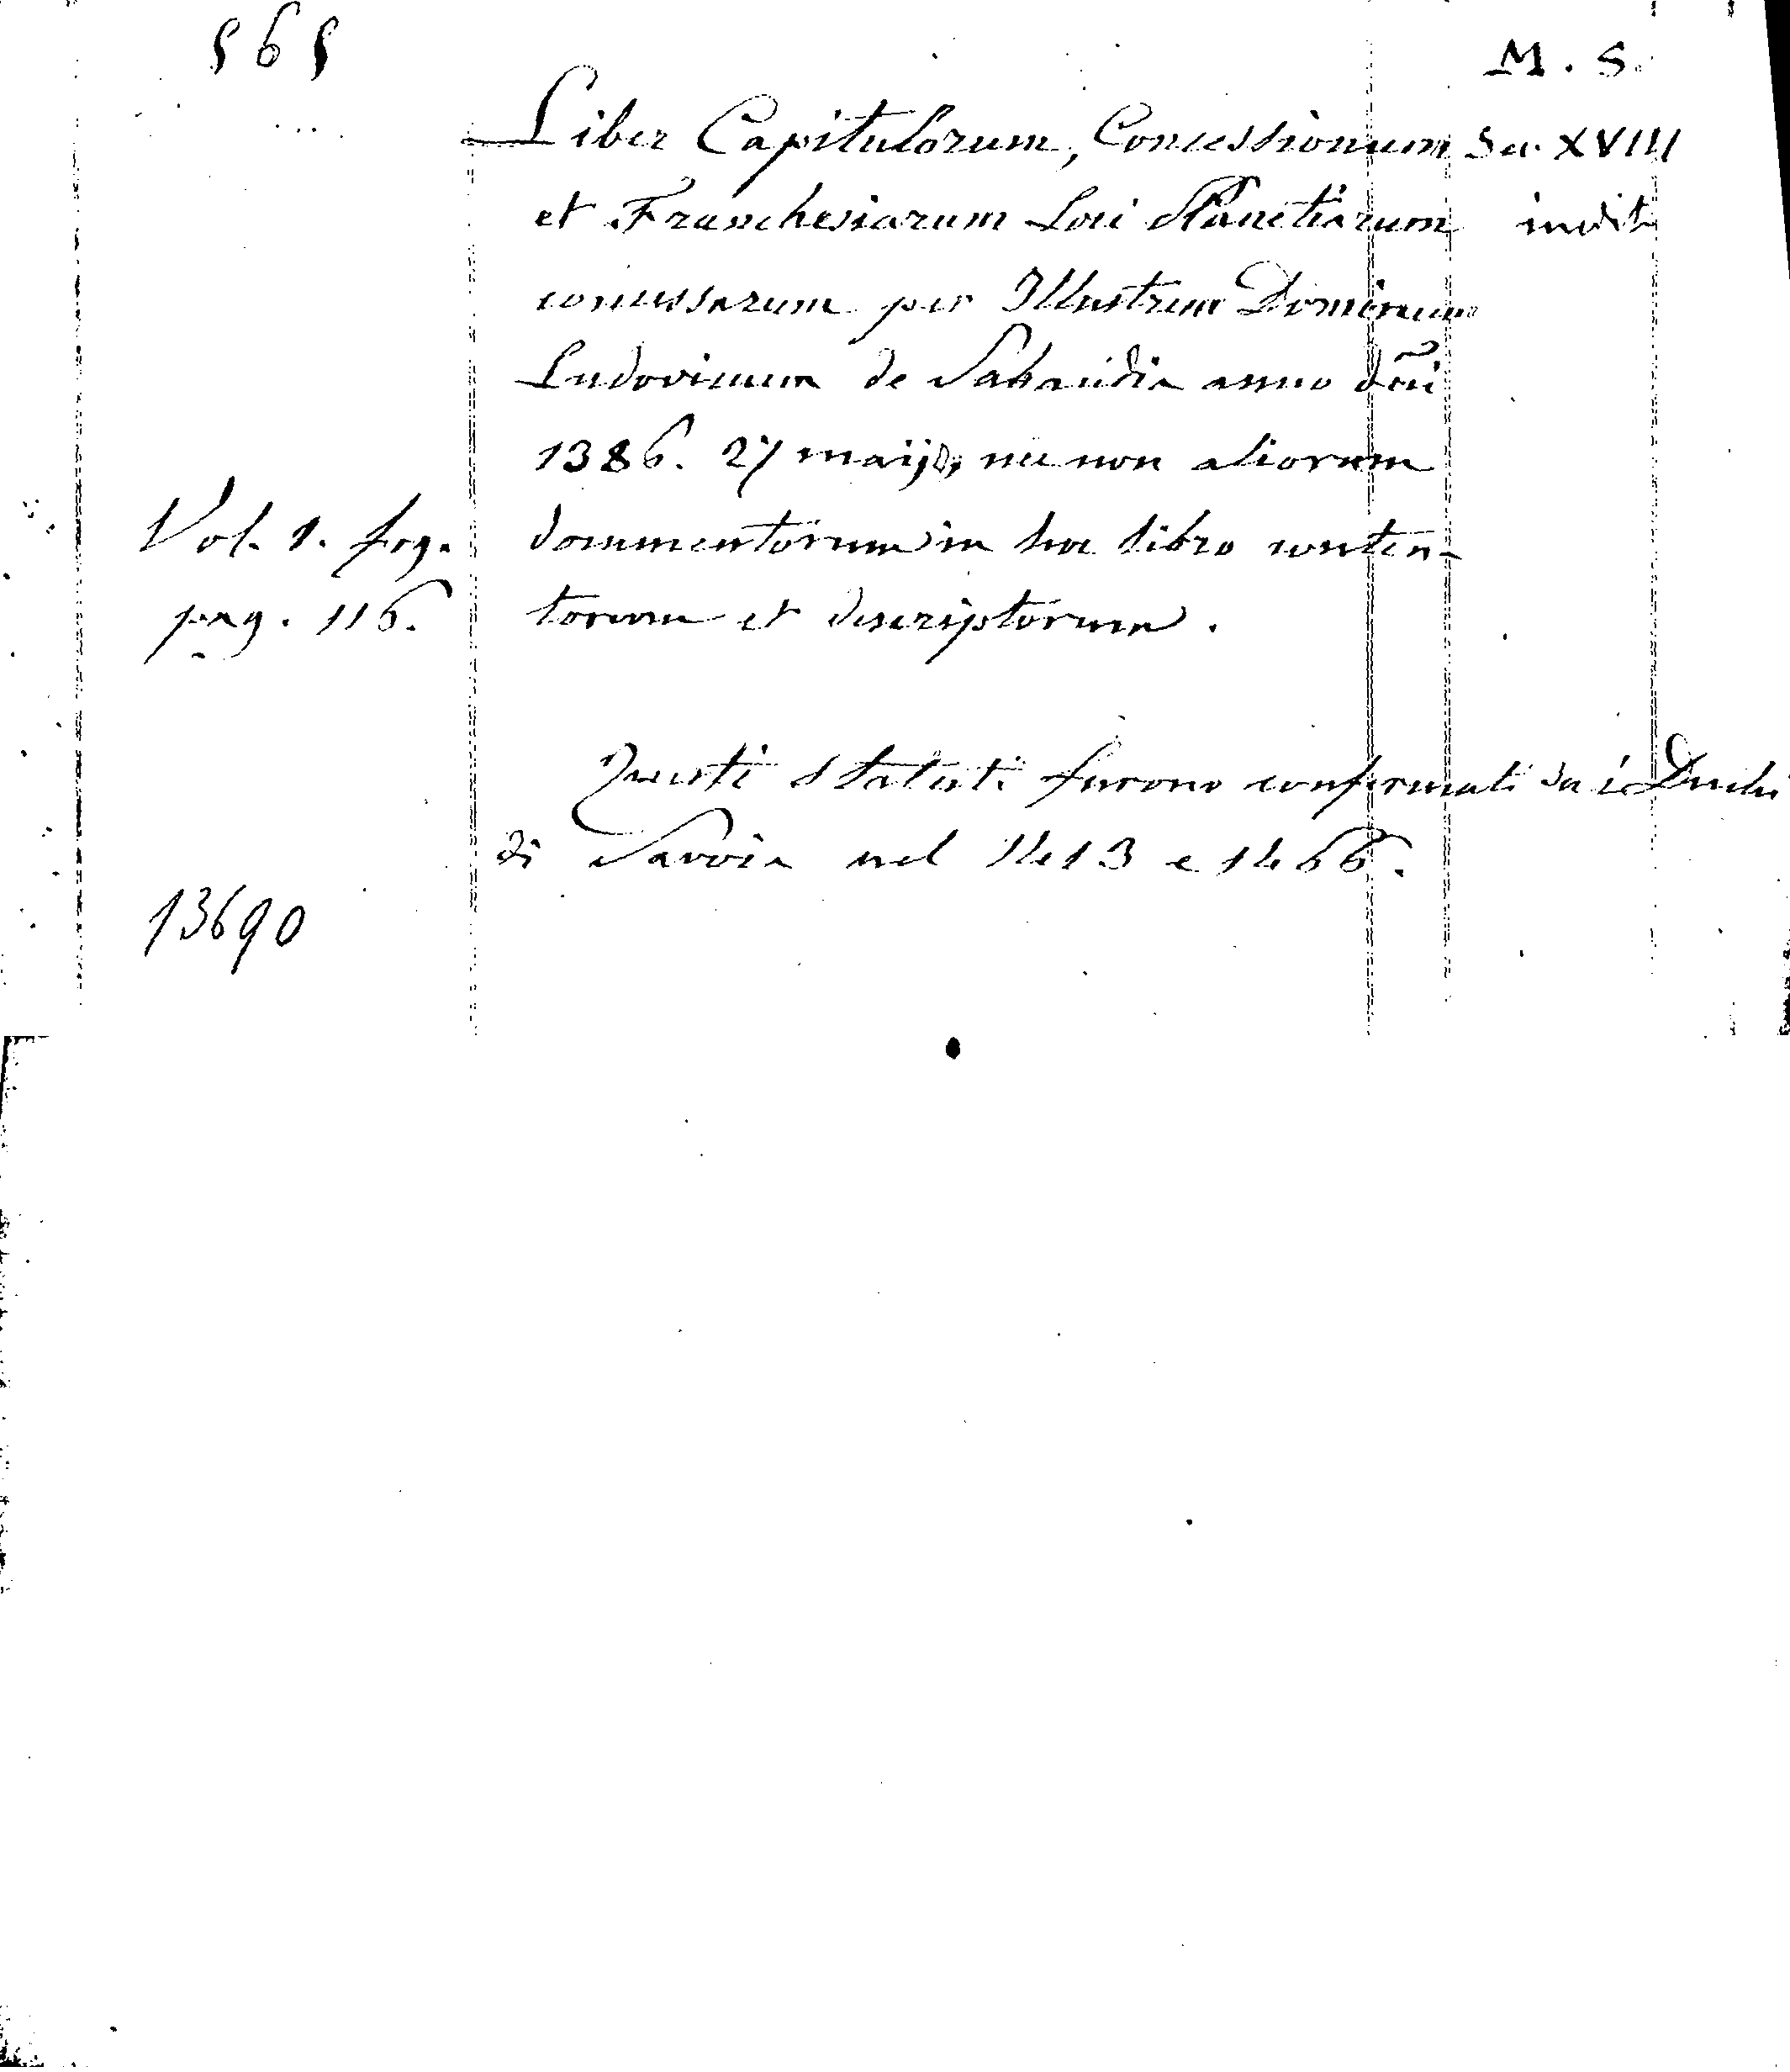 565
M. S.
Liber Capitulorum, Concessionum Sec. XVIII
et Franchesiarum Loci Plancitiarum inedito
concessarum per Illustrem Dominum
Ludovicum de Sabaudia anno dñi
1386. 27 maij, nec non aliorum
Vol. 1. fog. documentorum in hoc libro conten-
pag. 116. torum et descriptorum.
Questi statuti furono confermati da i Duchi
di Savoia nel 1413 e 1466.
13690